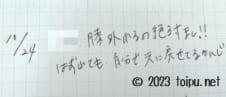 11/24 膝外れるの絶対すまい!!
はずれても、自分で元に戻せてるかんじ
© 2023 toipu.net